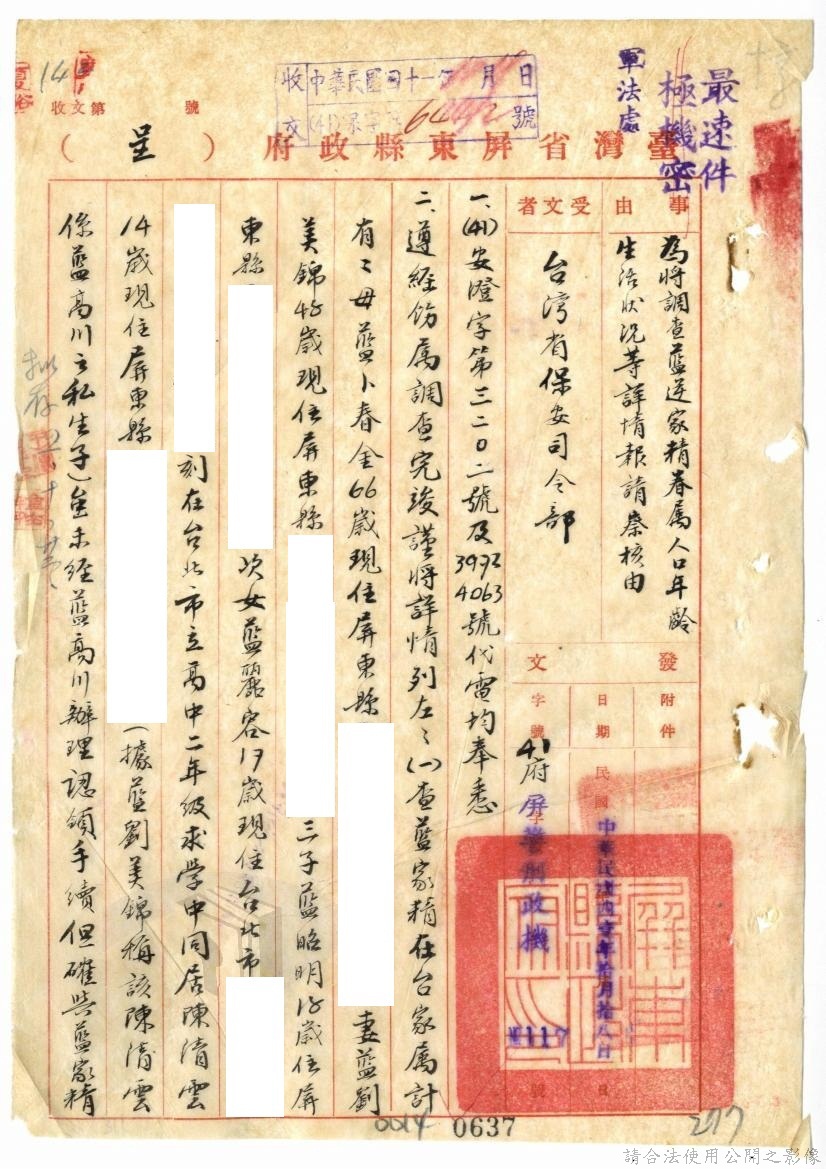 最速件
極機密
軍法處
收文
中華民國四十一年 月 日
(41) 字 號
收文第 號
臺灣省屏東縣政府
（呈）
事由
為將調查藍逆家精眷屬人口年齡
生活狀況等詳情報請察核由
受文者
台湾省保安司令部
發文
附件
日期
民國
中華民國四壹年拾月拾八日
字號
41府屏警刑政機
字
1117
號
一、(41)安澄字第三二0二號及3992 4063號代電均奉悉
二、遵經飭属調查完竣謹將詳情列左：(一)查藍家精在台家属計
有：母藍卜春金66歲現住屏東縣
妻藍劉
美錦48歲現住屏東縣
三子藍昭明18歲住屏
東縣
次女藍麗容17歲現住台北市
刻在台北市立高中二年級求学中同居陳清雲
14歲現住屏東縣
（據藍劉美錦稱該陳清雲
係藍高川之私生子）虽未經藍高川辦理認領手續但確與藍家精
0014
0637
277
請合法使用公開之影像